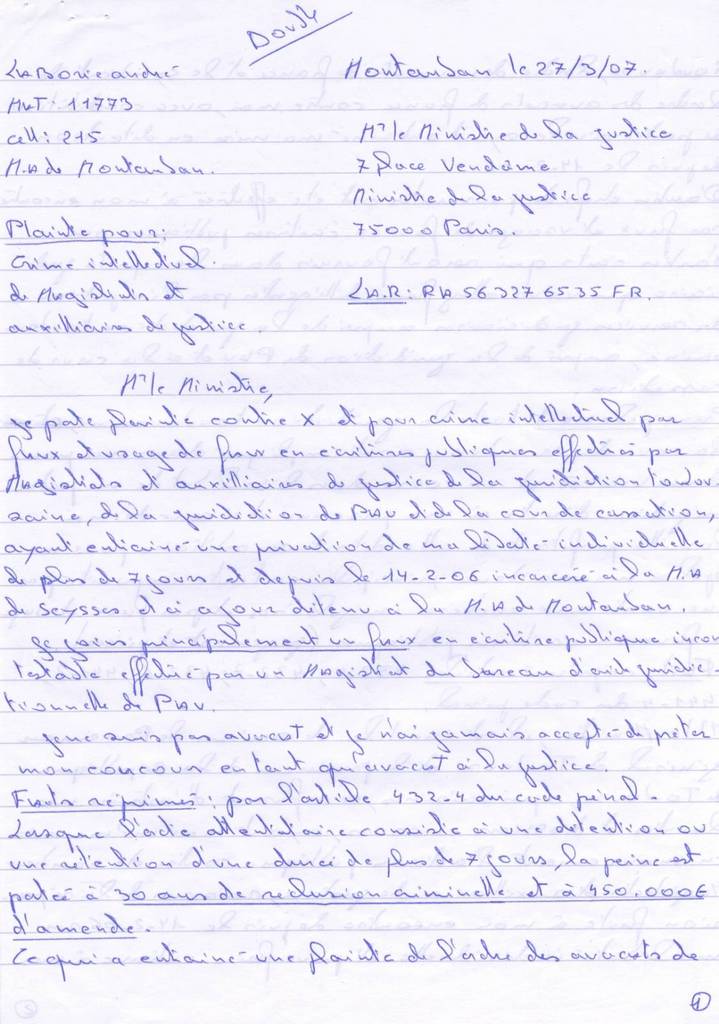 LABorie andré
Montauban le 27/3/07.
Mat: 11773
cell: 215
Mr le Ministre de la justice
M.A de Montauban.
7 Place Vendôme
Ministre de la justice
Plainte pour:
75000 Paris.
Crime intellectuel
de Magistrats et
L.A.R: RA 56 327 6535 FR.
auxilliaires de justice.
Mr le Ministre,
Je porte plainte contre X et pour crime intellectuel par
faux et usage de faux en écritures publiques effectués par
Magistrats et auxilliaires de justice de la juridiction toulou
saine, de la juridiction de PAU et de la cour de cassation,
ayant entrainé une privation de ma liberté individuelle
de plus de 7 jours et depuis le 14-2-06 incarcéré à la M.A
de Seysses et à ce jour détenu à la M.A de Montauban.
Je joins principalement un faux en écriture publique incon
testable effectué par un Magistrat du bureau d'aide juridic-
tionnelle de PAU.
Je ne suis pas avocat et je n'ai jamais accepté de prêter
mon concour en tant qu'avocat à la justice.
Faits réprimés: par l'article 432-4 du code pénal.
Lorsque l'acte attentatoire consiste à une détention ou
une rétention d'une durée de plus de 7 jours, la peine est
portée à 30 ans de reclusion criminelle et à 450.000€
d'amende.
Ce qui a entainé une plainte de l'ordre des avocats de
1